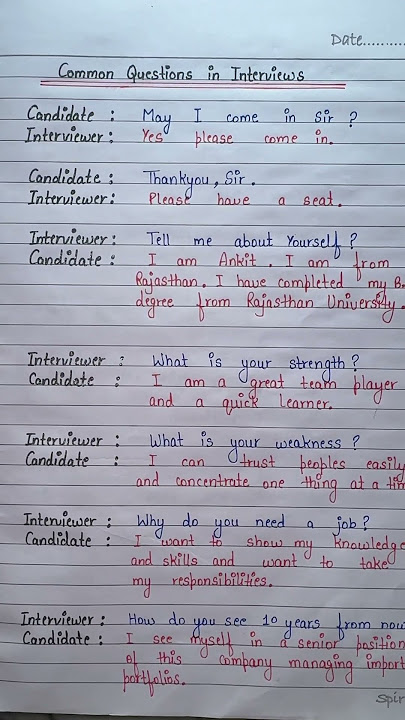 Date..........
Common Questions in Interviews
Candidate : May I come in Sir ?
Interviewer: Yes please come in.
Candidate : Thankyou, Sir.
Interviewer: Please have a seat.
Interviewer: Tell me about Yourself ?
Candidate : I am Ankit. I am from
Rajasthan. I have completed my B.
degree from Rajasthan University.
Interviewer : What is your strength ?
Candidate : I am a great team player
and a quick learner.
Interviewer : What is your weakness ?
Candidate : I can trust peoples easily
and concentrate one thing at a tim
Interviewer : Why do you need a job?
Candidate : I want to show my knowledge
and skills and want to take
my responsibilities.
Interviewer : How do you see 10 years from now
Candidate : I see myself in a senior position
of this company managing import
portfolios.
Spir